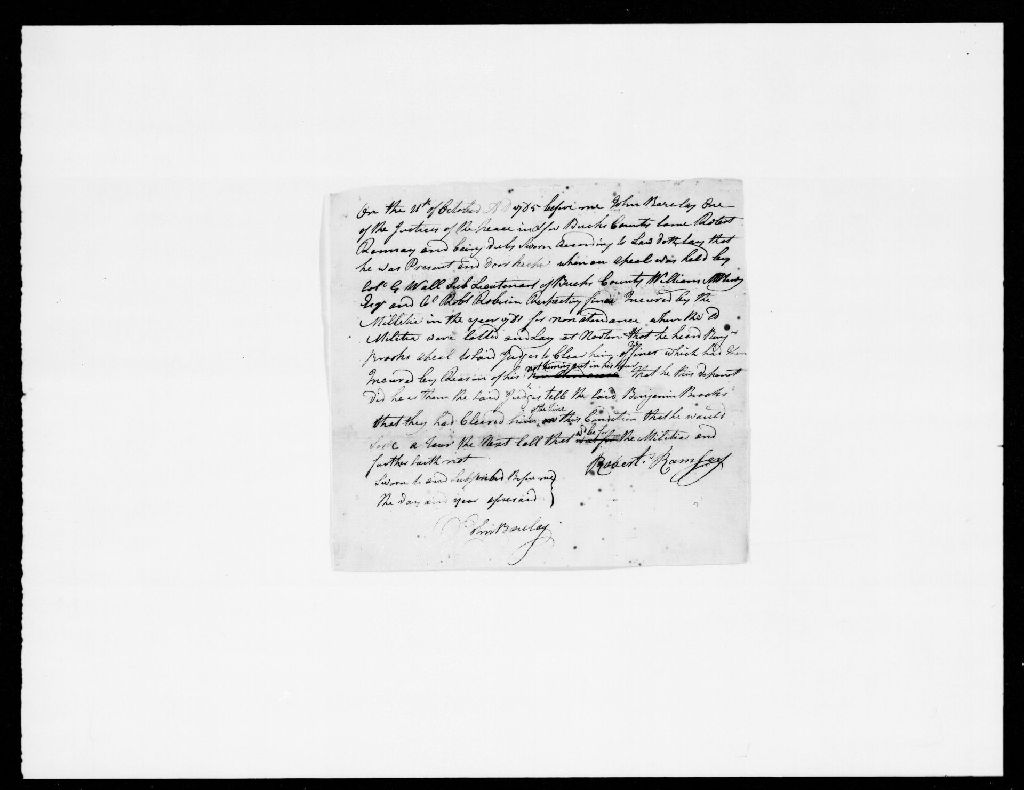 On the 21th of October AD 1785 before me John Barclay One
of the Justices of the Peace in & for Bucks County Came Robert
Ramsay and being duly Sworn according to Law doth Say that
he was Present and door keeper when an apeal was held by
Colo. G Wall Sub Lieutenant of Bucks County William
Esqr and Robt fines Incured by the
Militia in the year 1781 for non atendance when the sd
Militia were Called and Lay at Newton that he heard Benjn
Brooks apeal to said Judges to Clear him of fines which had
Incured by Reason of his not turning out in his Tour that he this deponant
did hear them the said Judges tell the said Benjamin Brooks
that they had Cleared him of the fine on this Condition that he would
a Tour the Next Call that the Militia and
further saith not
Robert Ramsey
Sworn to and Subscribed Before me
the day and year aforesaid
John Barclay